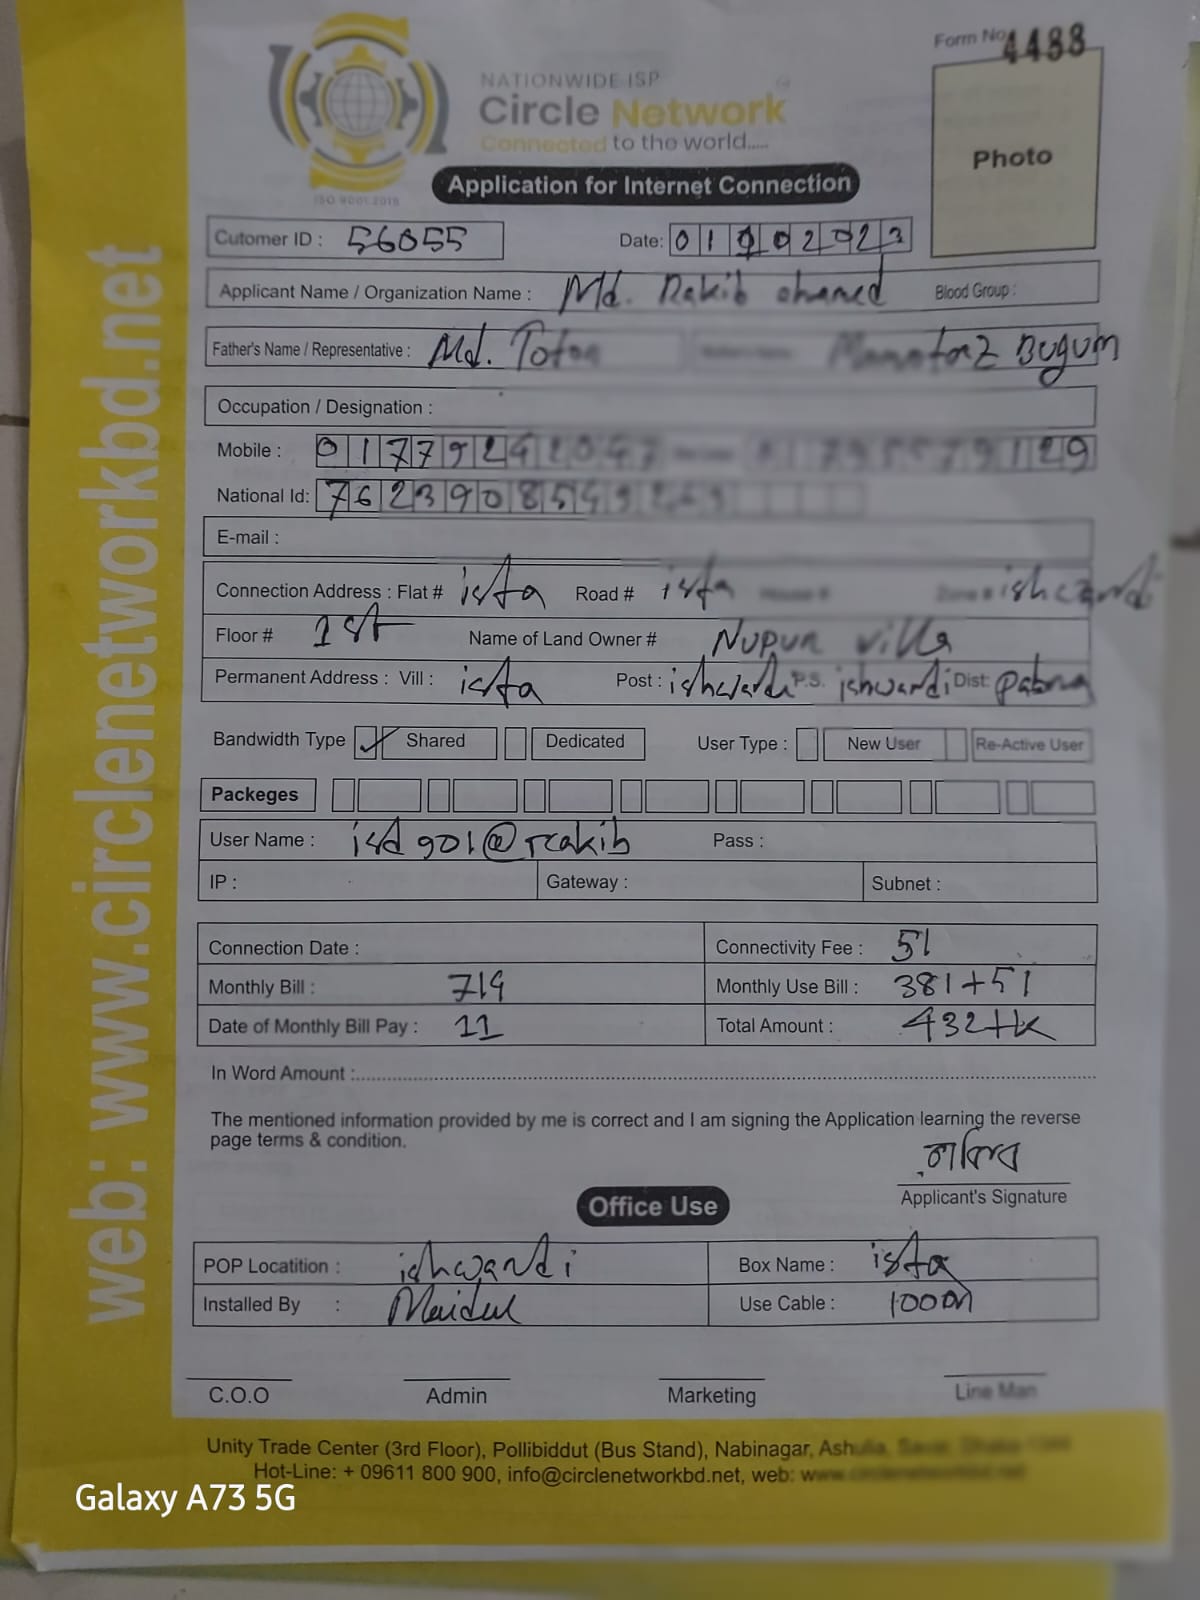 Form No 4488
NATIONWIDE ISP
Circle Network
Connected to the world.....
ISO 9001:2015
Photo
Application for Internet Connection
Cutomer ID : 56055 Date: 01
Applicant Name / Organization Name : Md. Rakib ahamed Blood Group :
Father's Name / Representative : Md. Toton Begum
Occupation / Designation :
Mobile : 29
National Id:
E-mail :
Connection Address : Flat # ista Road # ista ishwardi
Floor # 1st Name of Land Owner # Nupur villa
Permanent Address : Vill : ista Post : ishwardi P.S. ishwardi Dist: pabna
Bandwidth Type Shared Dedicated User Type : New User Re-Active User
Packeges
User Name : isd901@rakib Pass :
IP : Gateway : Subnet :
Connection Date : Connectivity Fee : 51
Monthly Bill : 719 Monthly Use Bill : 381+51
Date of Monthly Bill Pay : 11 Total Amount : 432tk
In Word Amount :
The mentioned information provided by me is correct and I am signing the Application learning the reverse
page terms & condition.
রাকিব
Applicant's Signature
Office Use
POP Locatition : ishwardi Box Name : ista
Installed By : Maidul Use Cable : 100m
C.O.O Admin Marketing Line Man
Unity Trade Center (3rd Floor), Pollibiddut (Bus Stand), Nabinagar, Ashulia,
Hot-Line: + 09611 800 900, info@circlenetworkbd.net, web:
web: www.circlenetworkbd.net
Galaxy A73 5G